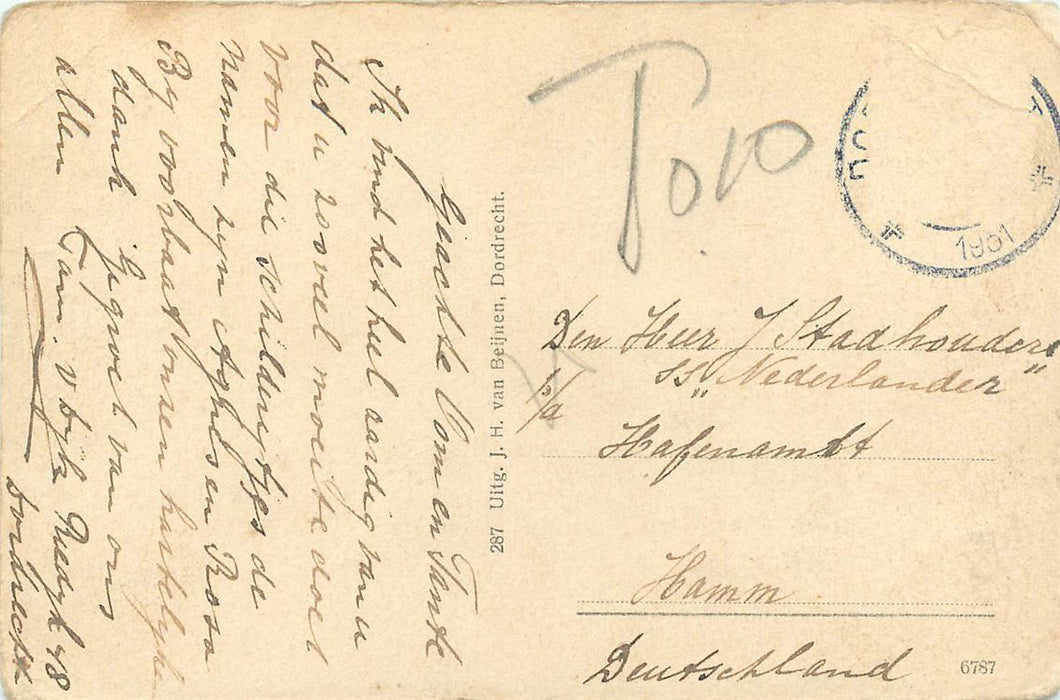 Geachte Oom en Tante
Ik vind het heel aardig van u
dat u zoveel moeite doet
voor die schilderytjes de
namen zyn Aghes en Rosa
By voorbaat onsen hartelyke
dank Gegroet van ons
allen Fam. v Dyk Reedyk 48
Dordrecht
287 Uitg. J. H. van Beijnen, Dordrecht.
DO
1931
Den Heer J Stadhouders
b/a SS „Nederlander"
Hafenambt
Hamm
Deutschland
6787